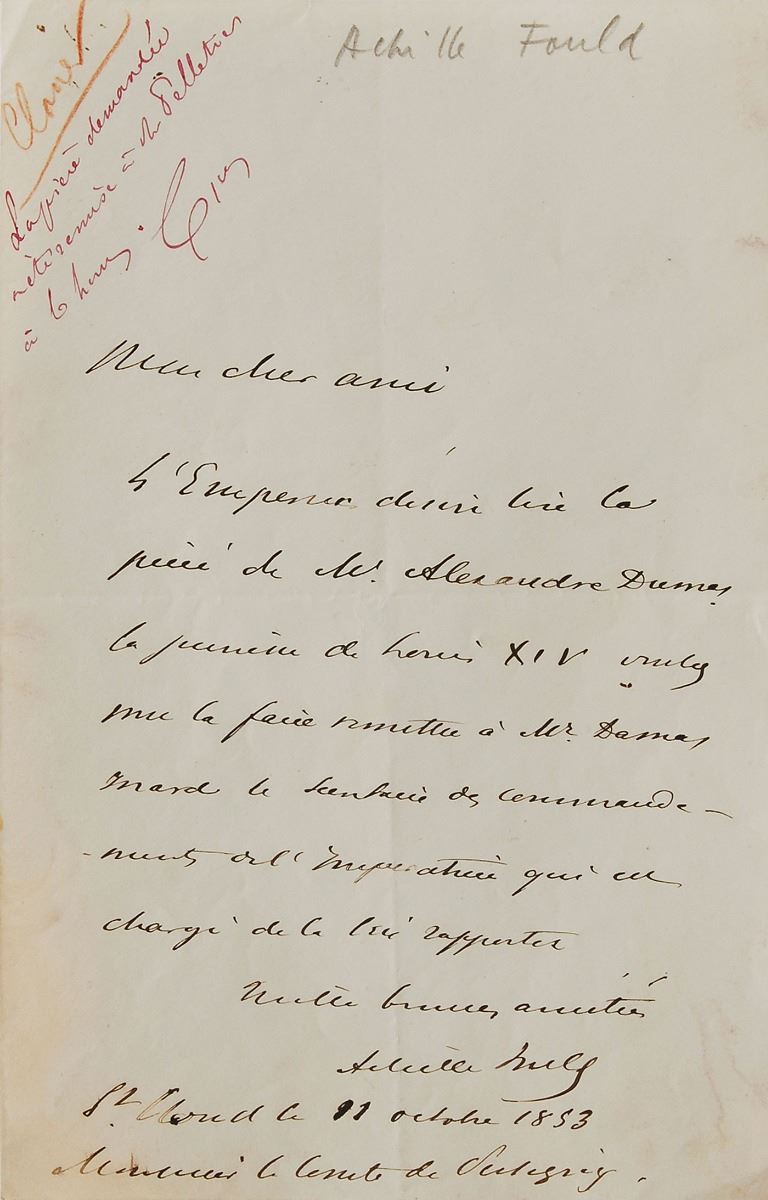 Achille Fould
Classer
La pièce demandée
a été remise à Mr Pelletier
à 6 heures.
Mon cher ami
L'Empereur désire lire la
pièce de Mr. Alexandre Dumas
la jeunesse de Louis XIV veuillez
me la faire remettre à Mr. Damas
inard le secrétaire des commande-
-ments de l'Impératrice qui est
chargé de la lui rapporter
Mille bonnes amitiés
Achille Fould
St. Cloud le 11 octobre 1853
Monsieur le Comte de